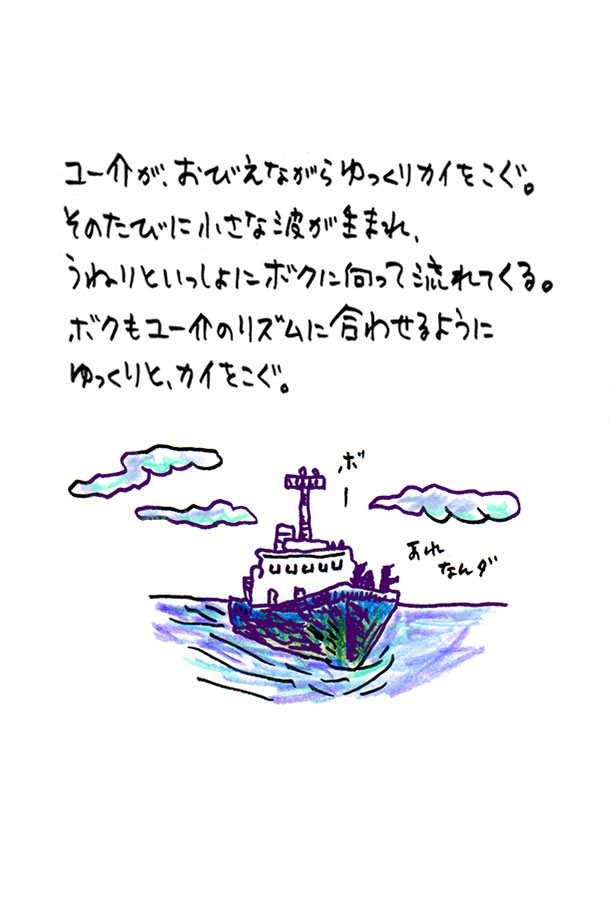 ユー介が、おびえながらゆっくりカイをこぐ。
そのたびに小さな波が生まれ、
うねりといっしょにボクに向って流れてくる。
ボクもユー介のリズムに合わせるように
ゆっくりと、カイをこぐ。
ボー
あれ
なんダ